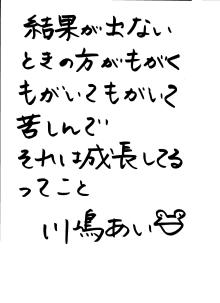 結果が出ない
ときの方がもがく
もがいてもがいて
苦しんで
それは成長してる
ってこと
川嶋あい